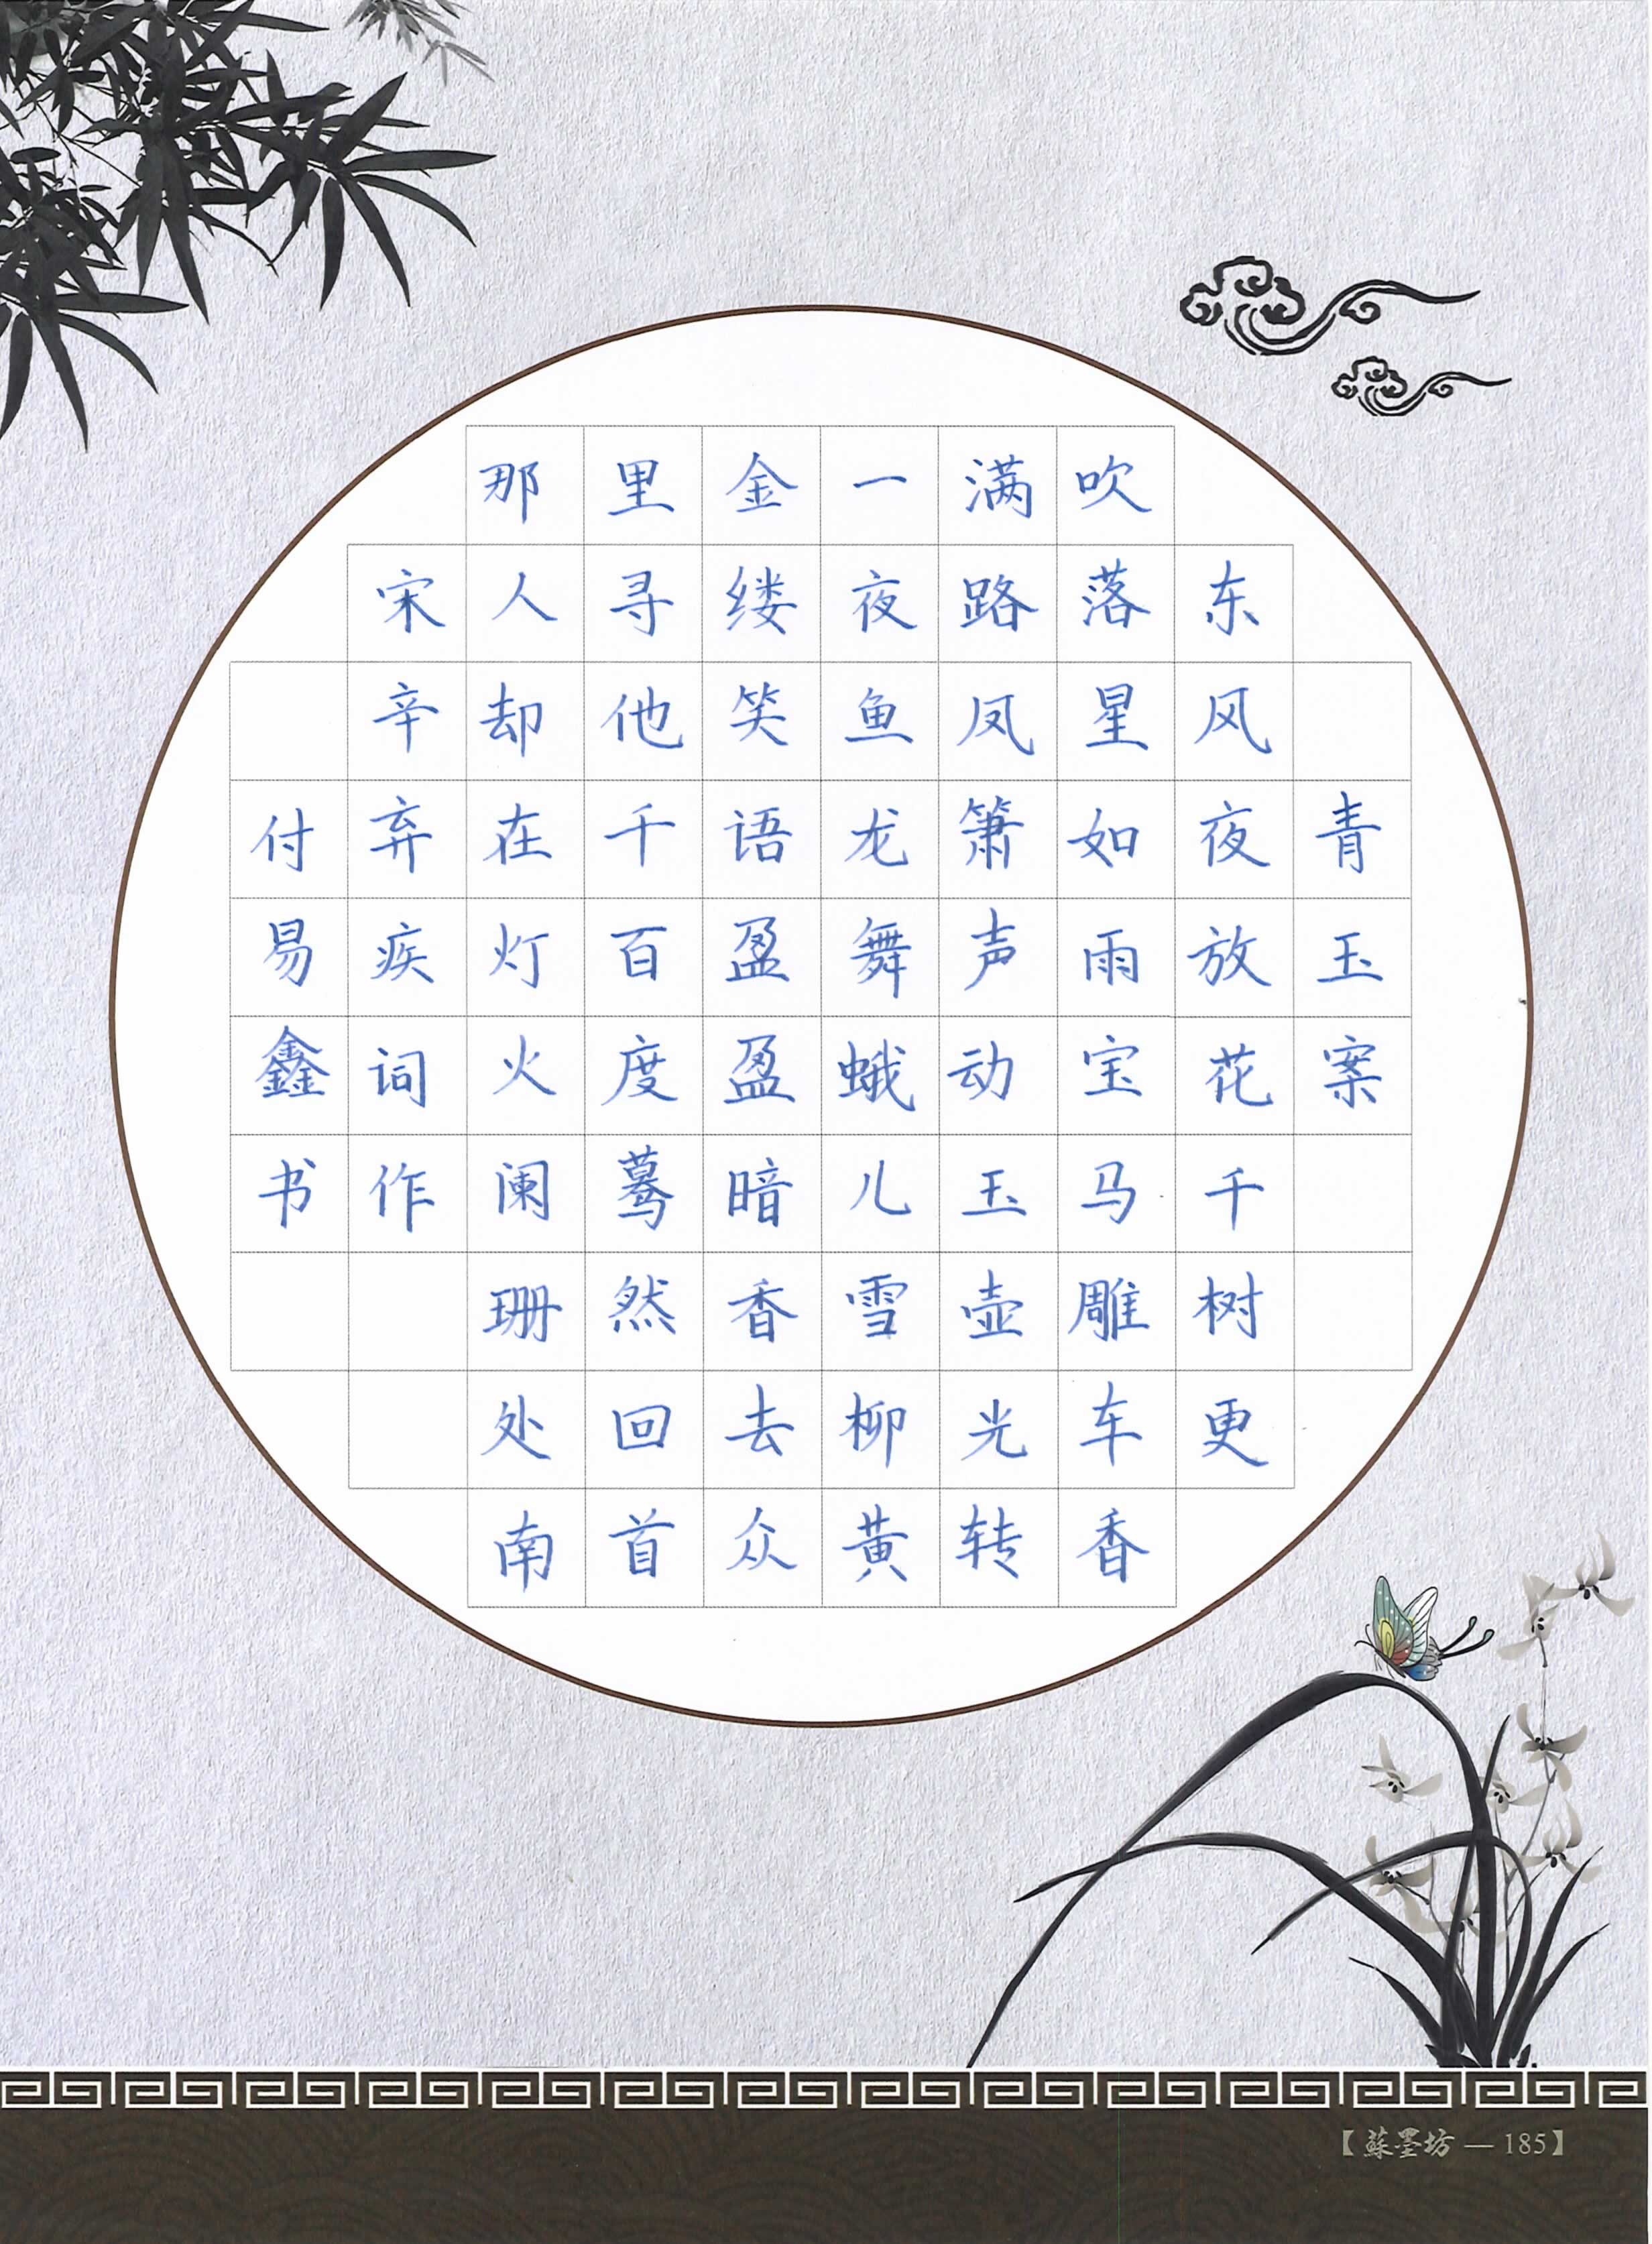 青玉案
东风夜放花千树更
吹落星如雨宝马雕车香
满路凤箫声动玉壶光转
一夜鱼龙舞蛾儿雪柳黄
金缕笑语盈盈暗香去众
里寻他千百度蓦然回首
那人却在灯火阑珊处南
宋辛弃疾词作
付易鑫书
【蘇墨坊—185】